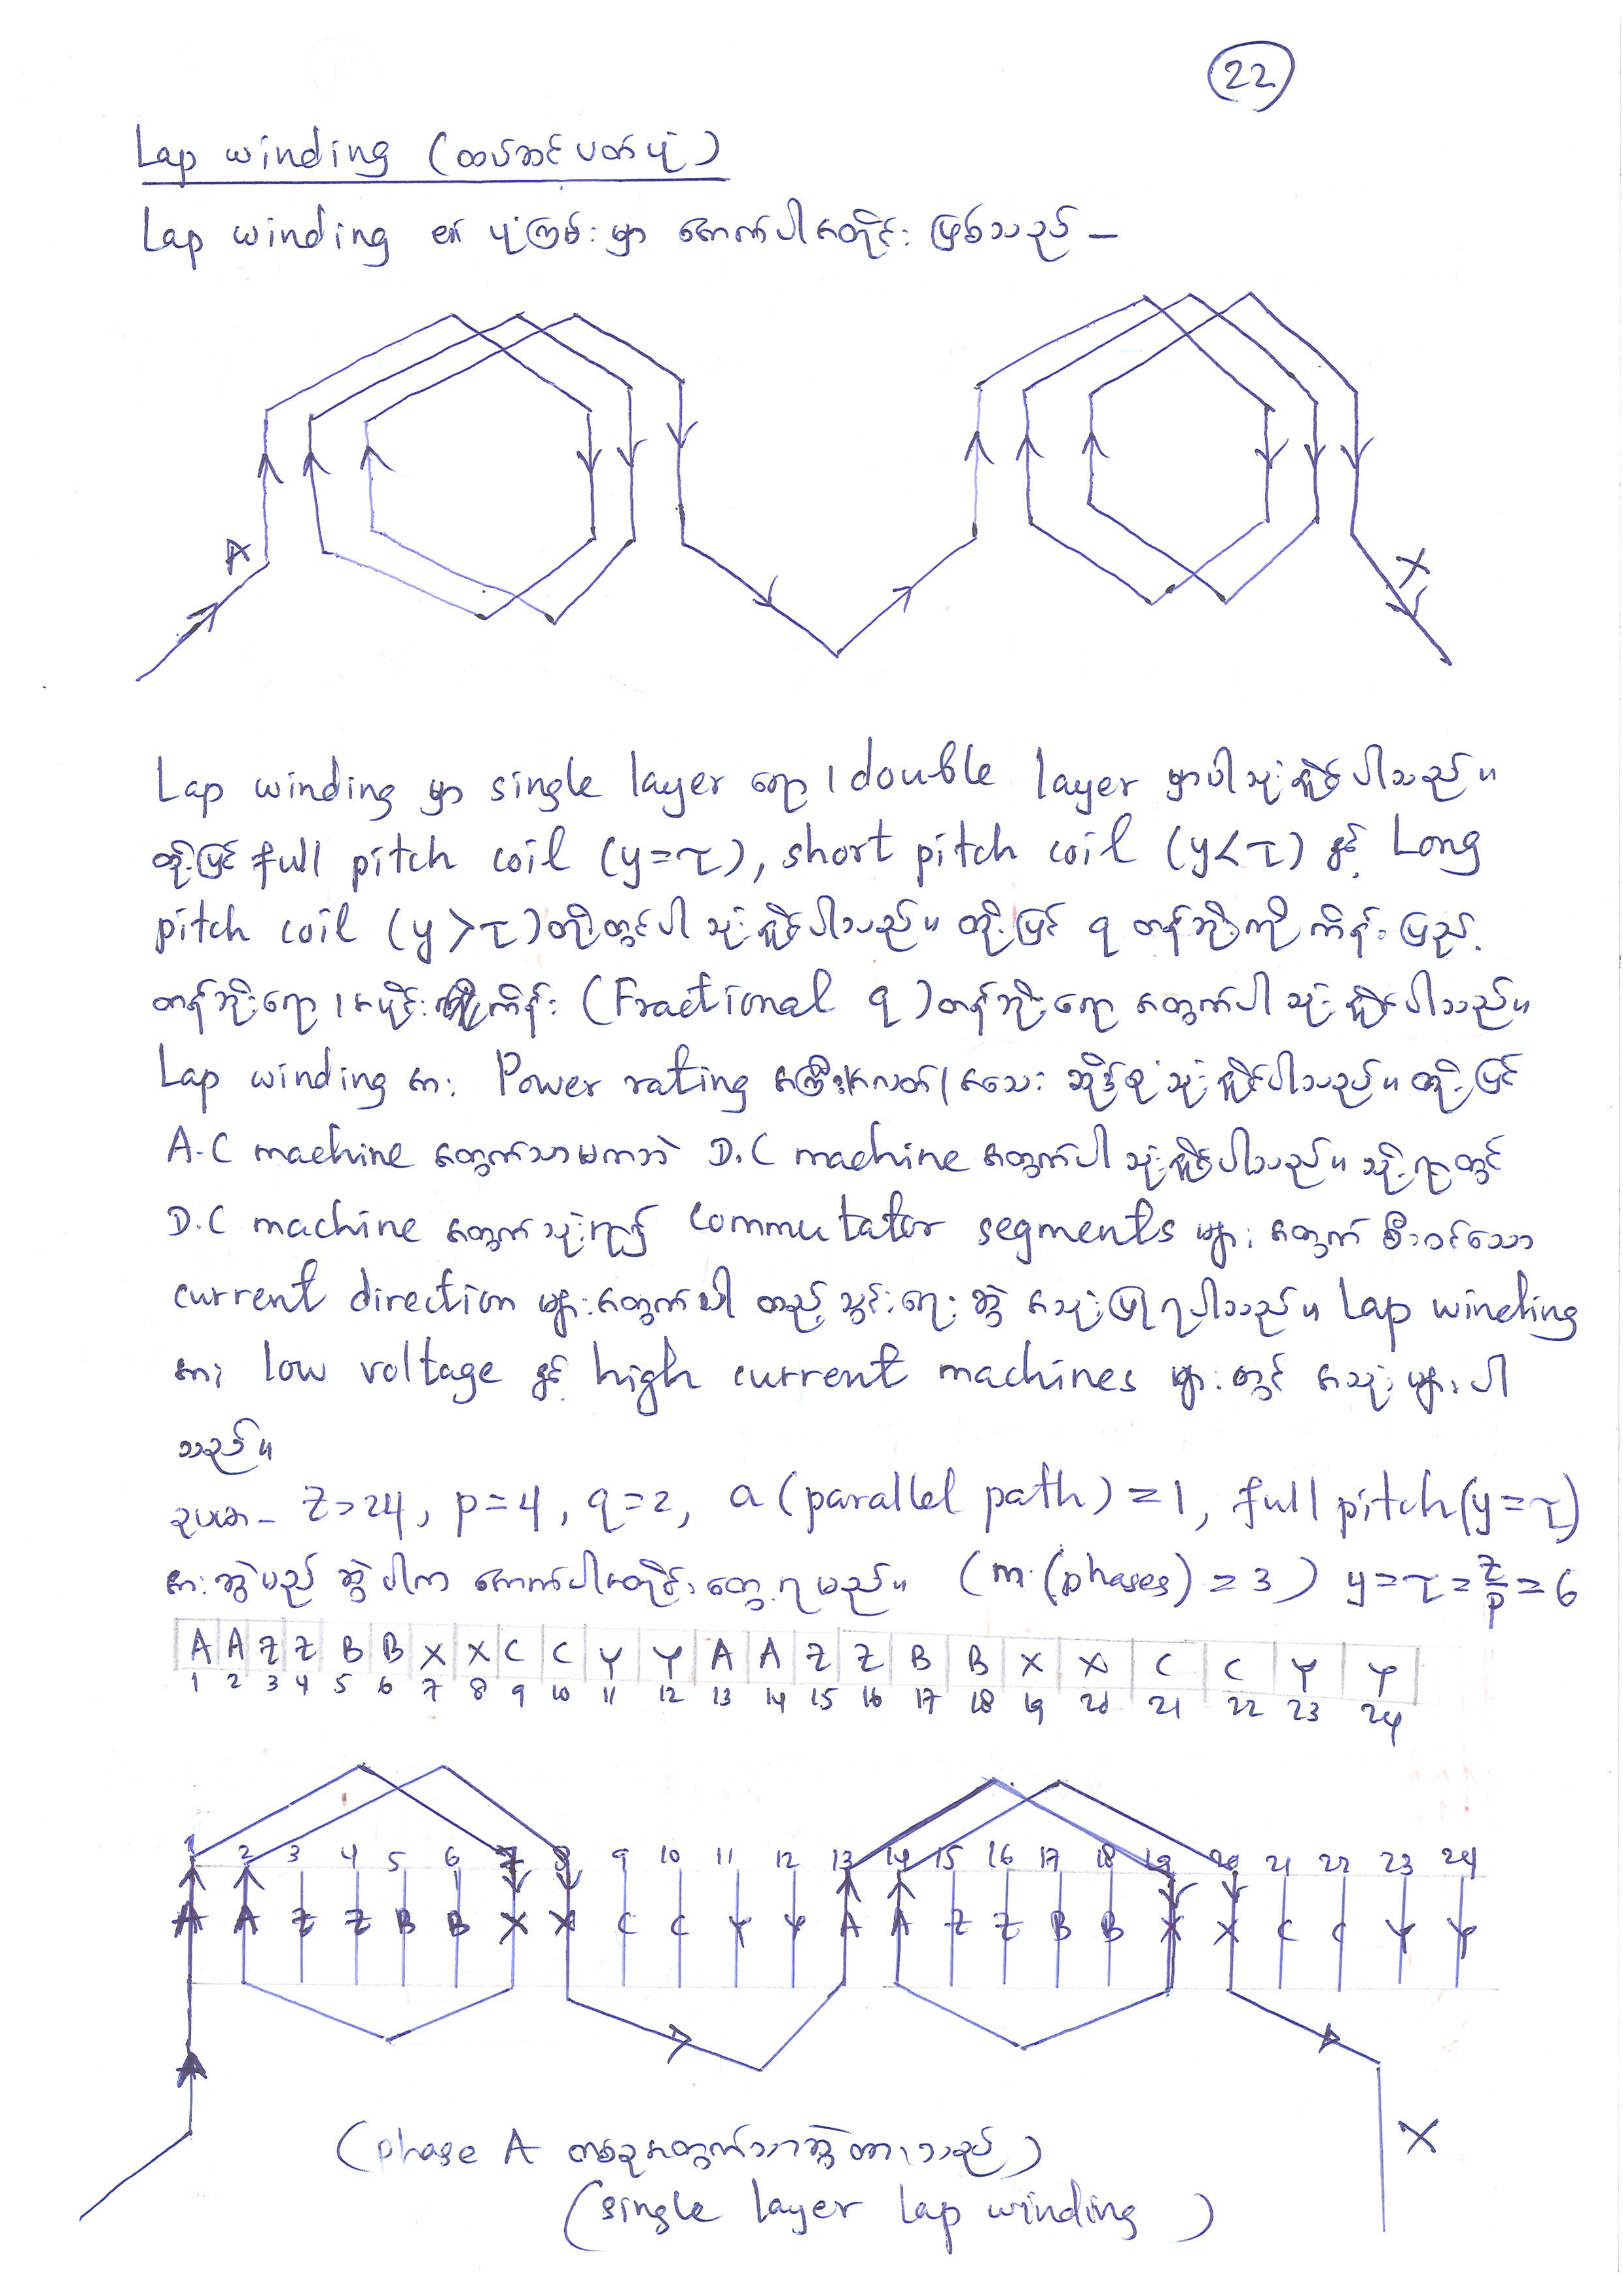 22
Lap winding (ထပ်ဆင့်ပတ်ပုံ)
Lap winding ၏ ပုံကြမ်းမှာ အောက်ပါအတိုင်း ဖြစ်သည် –
A
X
Lap winding မှာ single layer ရော၊ double layer မှာပါ သုံးနိုင်ပါသည်။
ထို့ပြင် full pitch coil (y=τ), short pitch coil (y<τ) နှင့် Long
pitch coil (y>τ) တို့တွင်ပါ သုံးနိုင်ပါသည်။ ထို့ပြင် q တန်ဘိုးကို ကိန်းပြည့်
တန်ဘိုးရော၊ အပိုင်းကိန်း (Fractional q) တန်ဘိုးရော အတွက်ပါ သုံးနိုင်ပါသည်။
Lap winding အား Power rating အကြီး၊ အလတ်၊ အသေး ဆိုဒ်စုံ သုံးနိုင်ပါသည်။ ထို့ပြင်
A.C machine အတွက်သာမကဘဲ D.C machine အတွက်ပါ သုံးနိုင်ပါသည်။ သို့ရာတွင်
D.C machine အတွက်သုံးရာ၌ commutator segments များ အတွက် စီးဝင်သော
current direction များအတွက်ပါ ထည့်သွင်းရေးဆွဲ အသုံးပြုရပါသည်။ Lap winding
အား low voltage နှင့် high current machines များတွင် အသုံးများပါ
သည်။
ဥပမာ– Z=24, p=4, q=2, a (parallel path) =1, full pitch (y=τ)
အား ဆွဲမည်ဆွဲပါက အောက်ပါအတိုင်း တွေ့ရမည်။ (m (phases) = 3) y=τ=Z/p=6
A A Z Z B B X X C C Y Y A A Z Z B B X X C C Y Y
1 2 3 4 5 6 7 8 9 10 11 12 13 14 15 16 17 18 19 20 21 22 23 24
1 2 3 4 5 6 7 8 9 10 11 12 13 14 15 16 17 18 19 20 21 22 23 24
A A Z Z B B X X C C Y Y A A Z Z B B X X C C Y Y
A
X
(phase A တစ်ခုအတွက်သာဆွဲထားသည်)
(single layer lap winding)